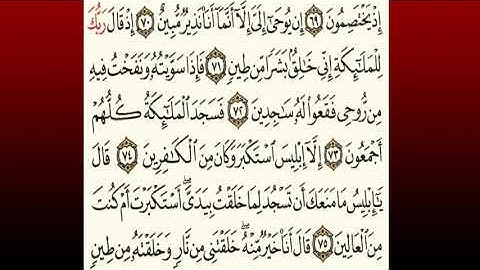 إِذْ يَخْتَصِمُونَ ٦٩ إِن يُوحَىٰ إِلَىَّ إِلَّا أَنَّمَا أَنَا۠ نَذِيرٌ مُّبِينٌ ٧٠ إِذْ قَالَ رَبُّكَ
لِلْمَلَـٰٓئِكَةِ إِنِّى خَـٰلِقٌۢ بَشَرًا مِّن طِينٍ ٧١ فَإِذَا سَوَّيْتُهُۥ وَنَفَخْتُ فِيهِ
مِن رُّوحِى فَقَعُوا۟ لَهُۥ سَـٰجِدِينَ ٧٢ فَسَجَدَ ٱلْمَلَـٰٓئِكَةُ كُلُّهُمْ
أَجْمَعُونَ ٧٣ إِلَّآ إِبْلِيسَ ٱسْتَكْبَرَ وَكَانَ مِنَ ٱلْكَـٰفِرِينَ ٧٤ قَالَ
يَـٰٓإِبْلِيسُ مَا مَنَعَكَ أَن تَسْجُدَ لِمَا خَلَقْتُ بِيَدَىَّ ۖ أَسْتَكْبَرْتَ أَمْ كُنتَ
مِنَ ٱلْعَالِينَ ٧٥ قَالَ أَنَا۠ خَيْرٌ مِّنْهُ ۖ خَلَقْتَنِى مِن نَّارٍ وَخَلَقْتَهُۥ مِن طِينٍ